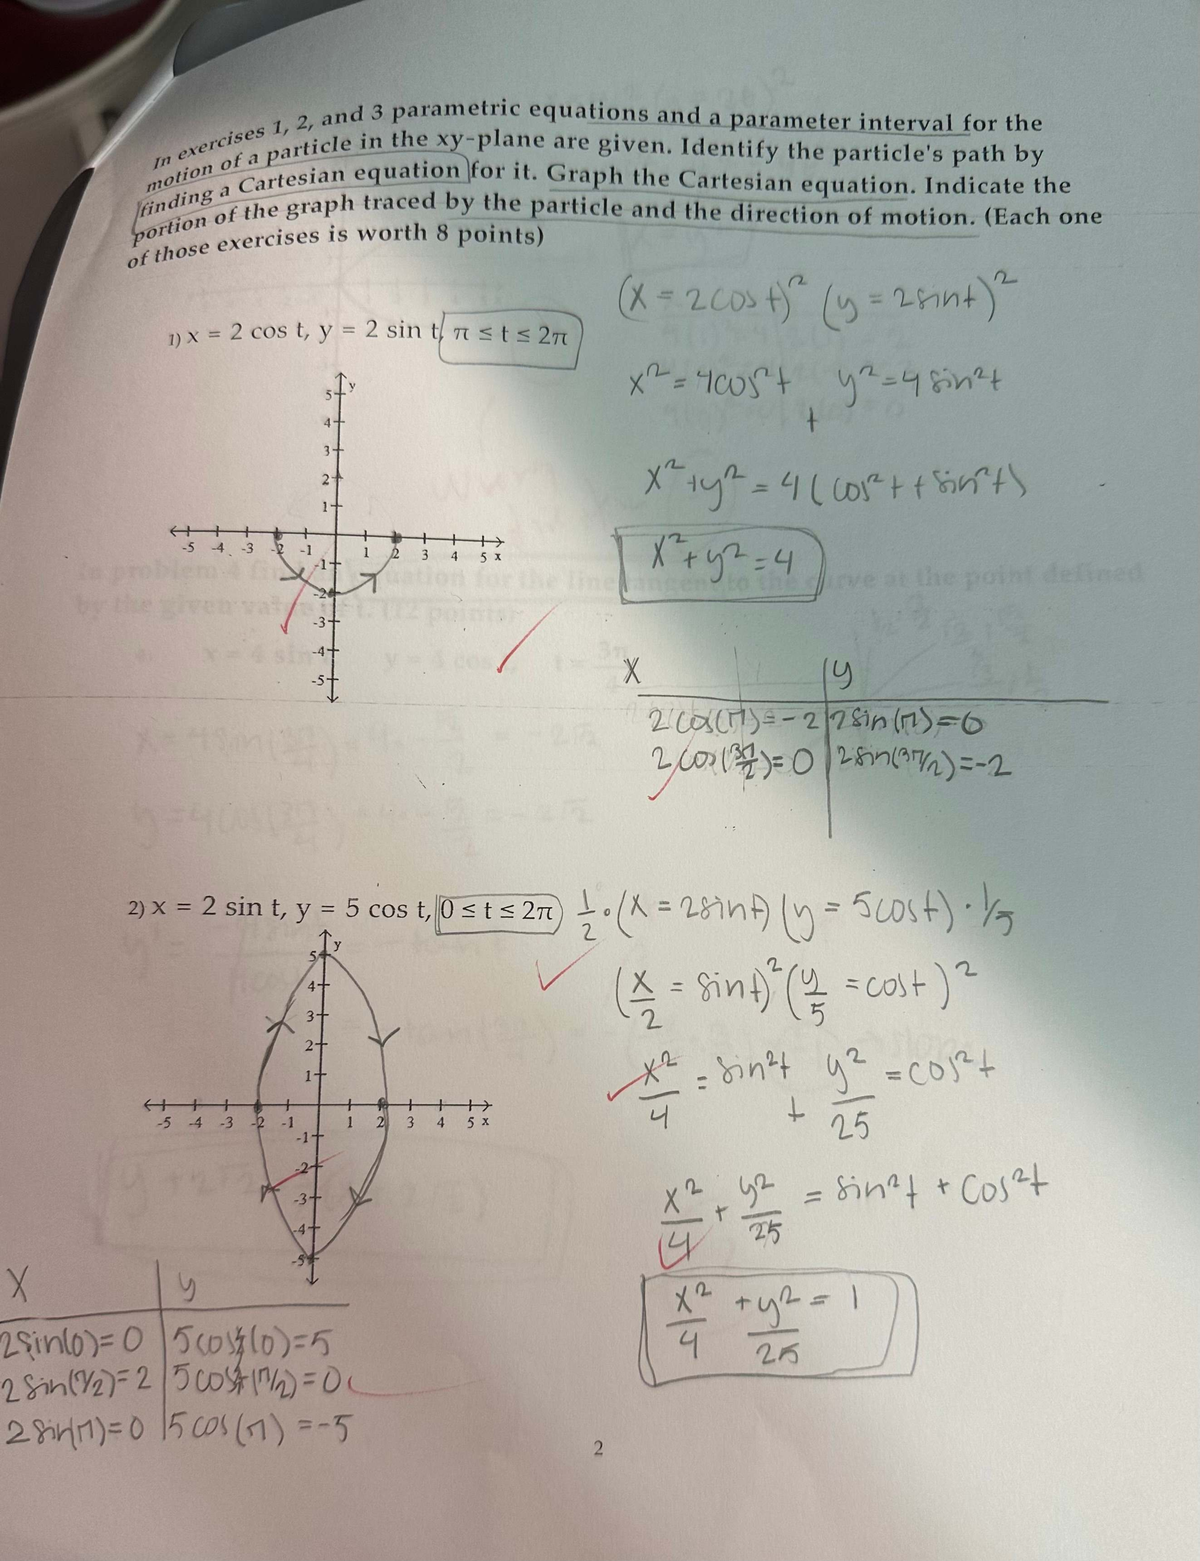 In exercises 1, 2, and 3 parametric equations and a parameter interval for the
motion of a particle in the xy-plane are given. Identify the particle's path by
finding a Cartesian equation for it. Graph the Cartesian equation. Indicate the
portion of the graph traced by the particle and the direction of motion. (Each one
of those exercises is worth 8 points)
(x = 2cost)² (y = 2sint)²
1) x = 2 cos t, y = 2 sin t, π ≤ t ≤ 2π
x² = 4cos²t + y² = 4sin²t
x² + y² = 4(cos²t + sin²t)
x² + y² = 4
y
5
4
3
2
1
-5 -4 -3 -2 -1 1 2 3 4 5 x
-1
-2
-3
-4
-5
x y
2cos(π) = -2 2sin(π) = 0
2cos(3π/2) = 0 2sin(3π/2) = -2
2) x = 2 sin t, y = 5 cos t, 0 ≤ t ≤ 2π
1/2 · (x = 2sint) (y = 5cost) · 1/5
(x/2 = sint)² (y/5 = cost)²
x²/4 = sin²t + y²/25 = cos²t
x²/4 + y²/25 = sin²t + cos²t
x²/4 + y²/25 = 1
y
5
4
3
2
1
-5 -4 -3 -2 -1 1 2 3 4 5 x
-1
-2
-3
-4
-5
x y
2sin(0) = 0 5cos(0) = 5
2sin(π/2) = 2 5cos(π/2) = 0
2sin(π) = 0 5cos(π) = -5
2